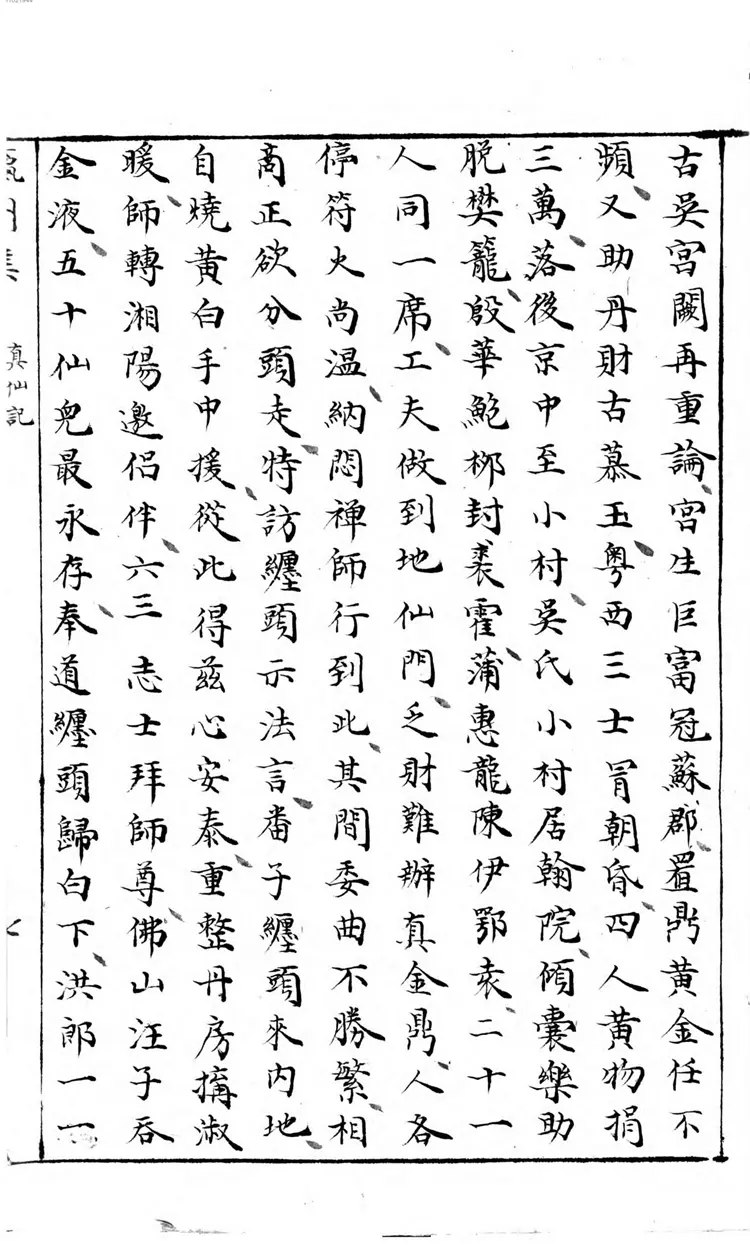 古吳宮闕再重論宮生巨富冠蘇郡置鼎黃金任不
頻又助丹財古慕玉粵西三士冐朝昏四人黃物捐
三萬落後京中至小村吳氏小村居翰院傾囊樂助
脫樊籠殷華鮑柳封裘霍蒲惠龍陳伊鄂袁二十一
人同一席工夫做到地仙門乏財難辦真金鼎人各
停符火尚溫納悶禪師行到此其間委曲不勝繁相
商正欲分頭走特訪纏頭示法言番子纏頭來內地
自燒黃白手中援從此得茲心安泰重整丹房搆淑
暖師轉湘陽邀侶伴六三志士拜師尊佛山汪子吞
金液五十仙兒最永存奉道纏頭歸白下洪郎一一
真仙記